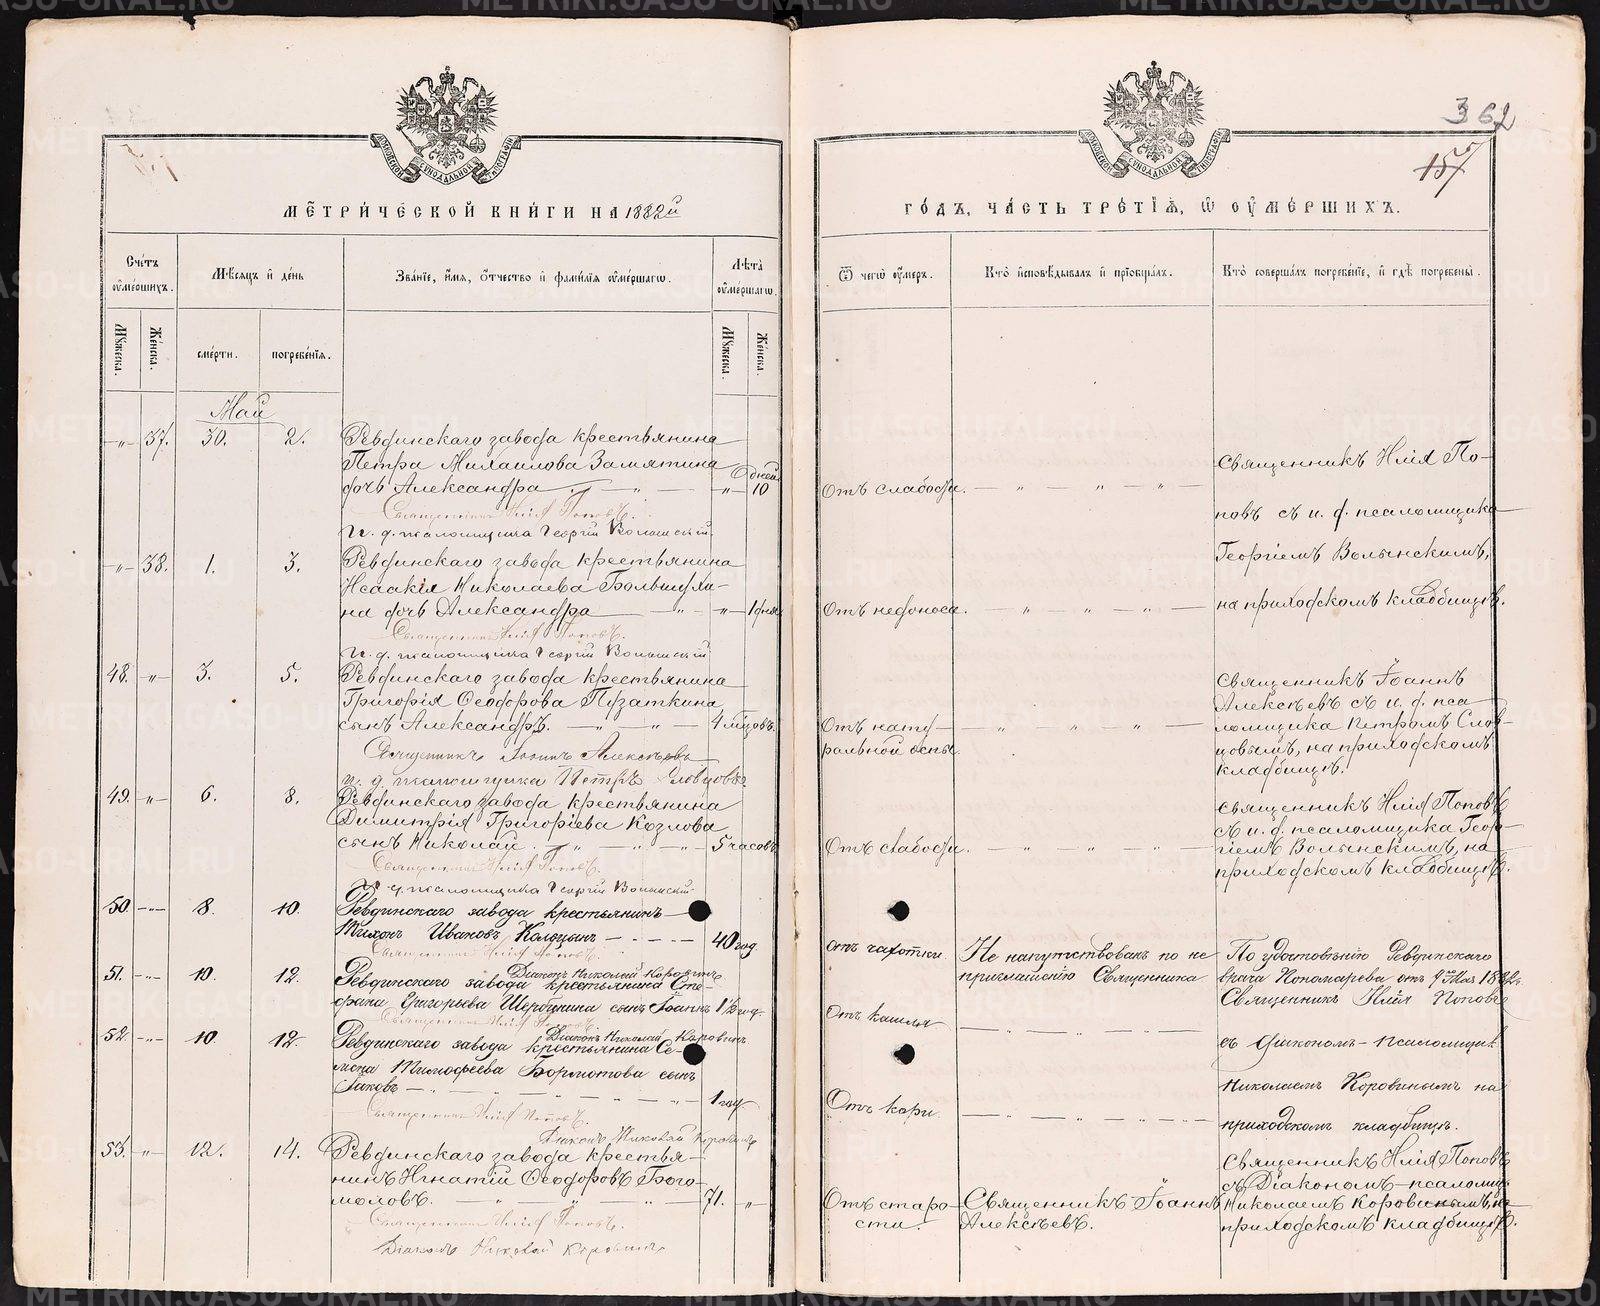 362
157
МЕТРИЧЕСКОЙ КНИГИ НА 1882й
ГОДЪ, ЧАСТЬ ТРЕТІѦ, Ѿ ОУМЕРШИХЪ.
Счетъ оумершихъ.
Мѣсяцъ и день
Званіе, имя, отчество и фамилія оумершагѡ.
Лѣта оумершагѡ.
Ѿ чегѡ оумеръ.
Кто исповѣдывалъ и пріобщалъ.
Кто совершалъ погребеніе, и гдѣ погребены.
Мужеска.
Женска.
смерти.
погребенія.
Мужеска.
Женска.
Май
-„- 37. 30. 2.
Ревдинскаго завода крестьянина
Петра Михаилова Замятина
дочь Александра -„- 10 дней
Священникъ Илія Поповъ.
И. д. псаломщика Георгій Волынскій.
Отъ слабости.
Священникъ Илія По-
новъ съ и. д. псаломщика
Георгіемъ Волынскимъ,
на приходскомъ кладбищѣ.
-„- 38. 1. 3.
Ревдинскаго завода крестьянина
Исаакія Николаева Большухи-
на дочь Александра -„- 1 дня
Священникъ Илія Поповъ.
И. д. псаломщика Георгій Волынскій.
Отъ недоноса.
48. -„- 3. 5.
Ревдинскаго завода крестьянина
Григорія Ѳеодорова Пузаткина
сынъ Александръ. 4 мѣцовъ.
Священникъ Іоаннъ Алексѣевъ
и. д. псаломщика Петръ Словцовъ.
Отъ нату-
ральной оспы.
Священникъ Іоаннъ
Алексѣевъ съ и. д. пса-
ломщика Петромъ Слов-
цовымъ, на приходскомъ
кладбищѣ.
49. -„- 6. 8.
Ревдинскаго завода крестьянина
Димитрія Григоріева Козлова
сынъ Николай. 5 часовъ
Священникъ Илія Поповъ.
И. д. псаломщика Георгій Волынскій.
Отъ слабости.
Священникъ Илія Поповъ
съ и. д. псаломщика Геор-
гіемъ Волынскимъ, на
приходскомъ кладбищѣ.
50. -„- 8. 10.
Ревдинскаго завода крестьянинъ
Тихонъ Ивановъ Колоцынъ 40 год.
Священникъ Илія Поповъ.
Діаконъ Николай Коровинъ
Отъ чахотки
Не напутствованъ по не
приглашенію Священника
По удостовѣнію Ревдинскаго
врача Пономарева отъ 9го Мая 1882г.
51. -„- 10. 12.
Ревдинскаго завода крестьянина Сте-
фана Григорьева Щербинина сынъ Іоаннъ 1½ год.
Священникъ Илія Поповъ.
Діаконъ Николай Коровинъ
Отъ кашля
Священникъ Илія Поповъ
съ Діакономъ-псаломщик.
Николаемъ Коровинымъ на
приходскомъ кладбищѣ.
52. -„- 10. 12.
Ревдинскаго завода крестьянина Се-
мена Тимофеева Бормотова сынъ
Іаковъ 1 год.
Священникъ Илія Поповъ.
Діаконъ Николай Коровинъ
Отъ кори.
53. -„- 12. 14.
Ревдинскаго завода крестья-
нинъ Игнатій Ѳеодоровъ Бого-
моловъ. 71. -„-
Священникъ Илія Поповъ.
Діаконъ Николай Коровинъ
Отъ старо-
сти.
Священникъ Іоаннъ
Алексѣевъ.
Священникъ Илія Поповъ
съ Діакономъ-псаломщ.
Николаемъ Коровинымъ, на
приходскомъ кладбищѣ.
METRIKI.GASO-URAL.RU